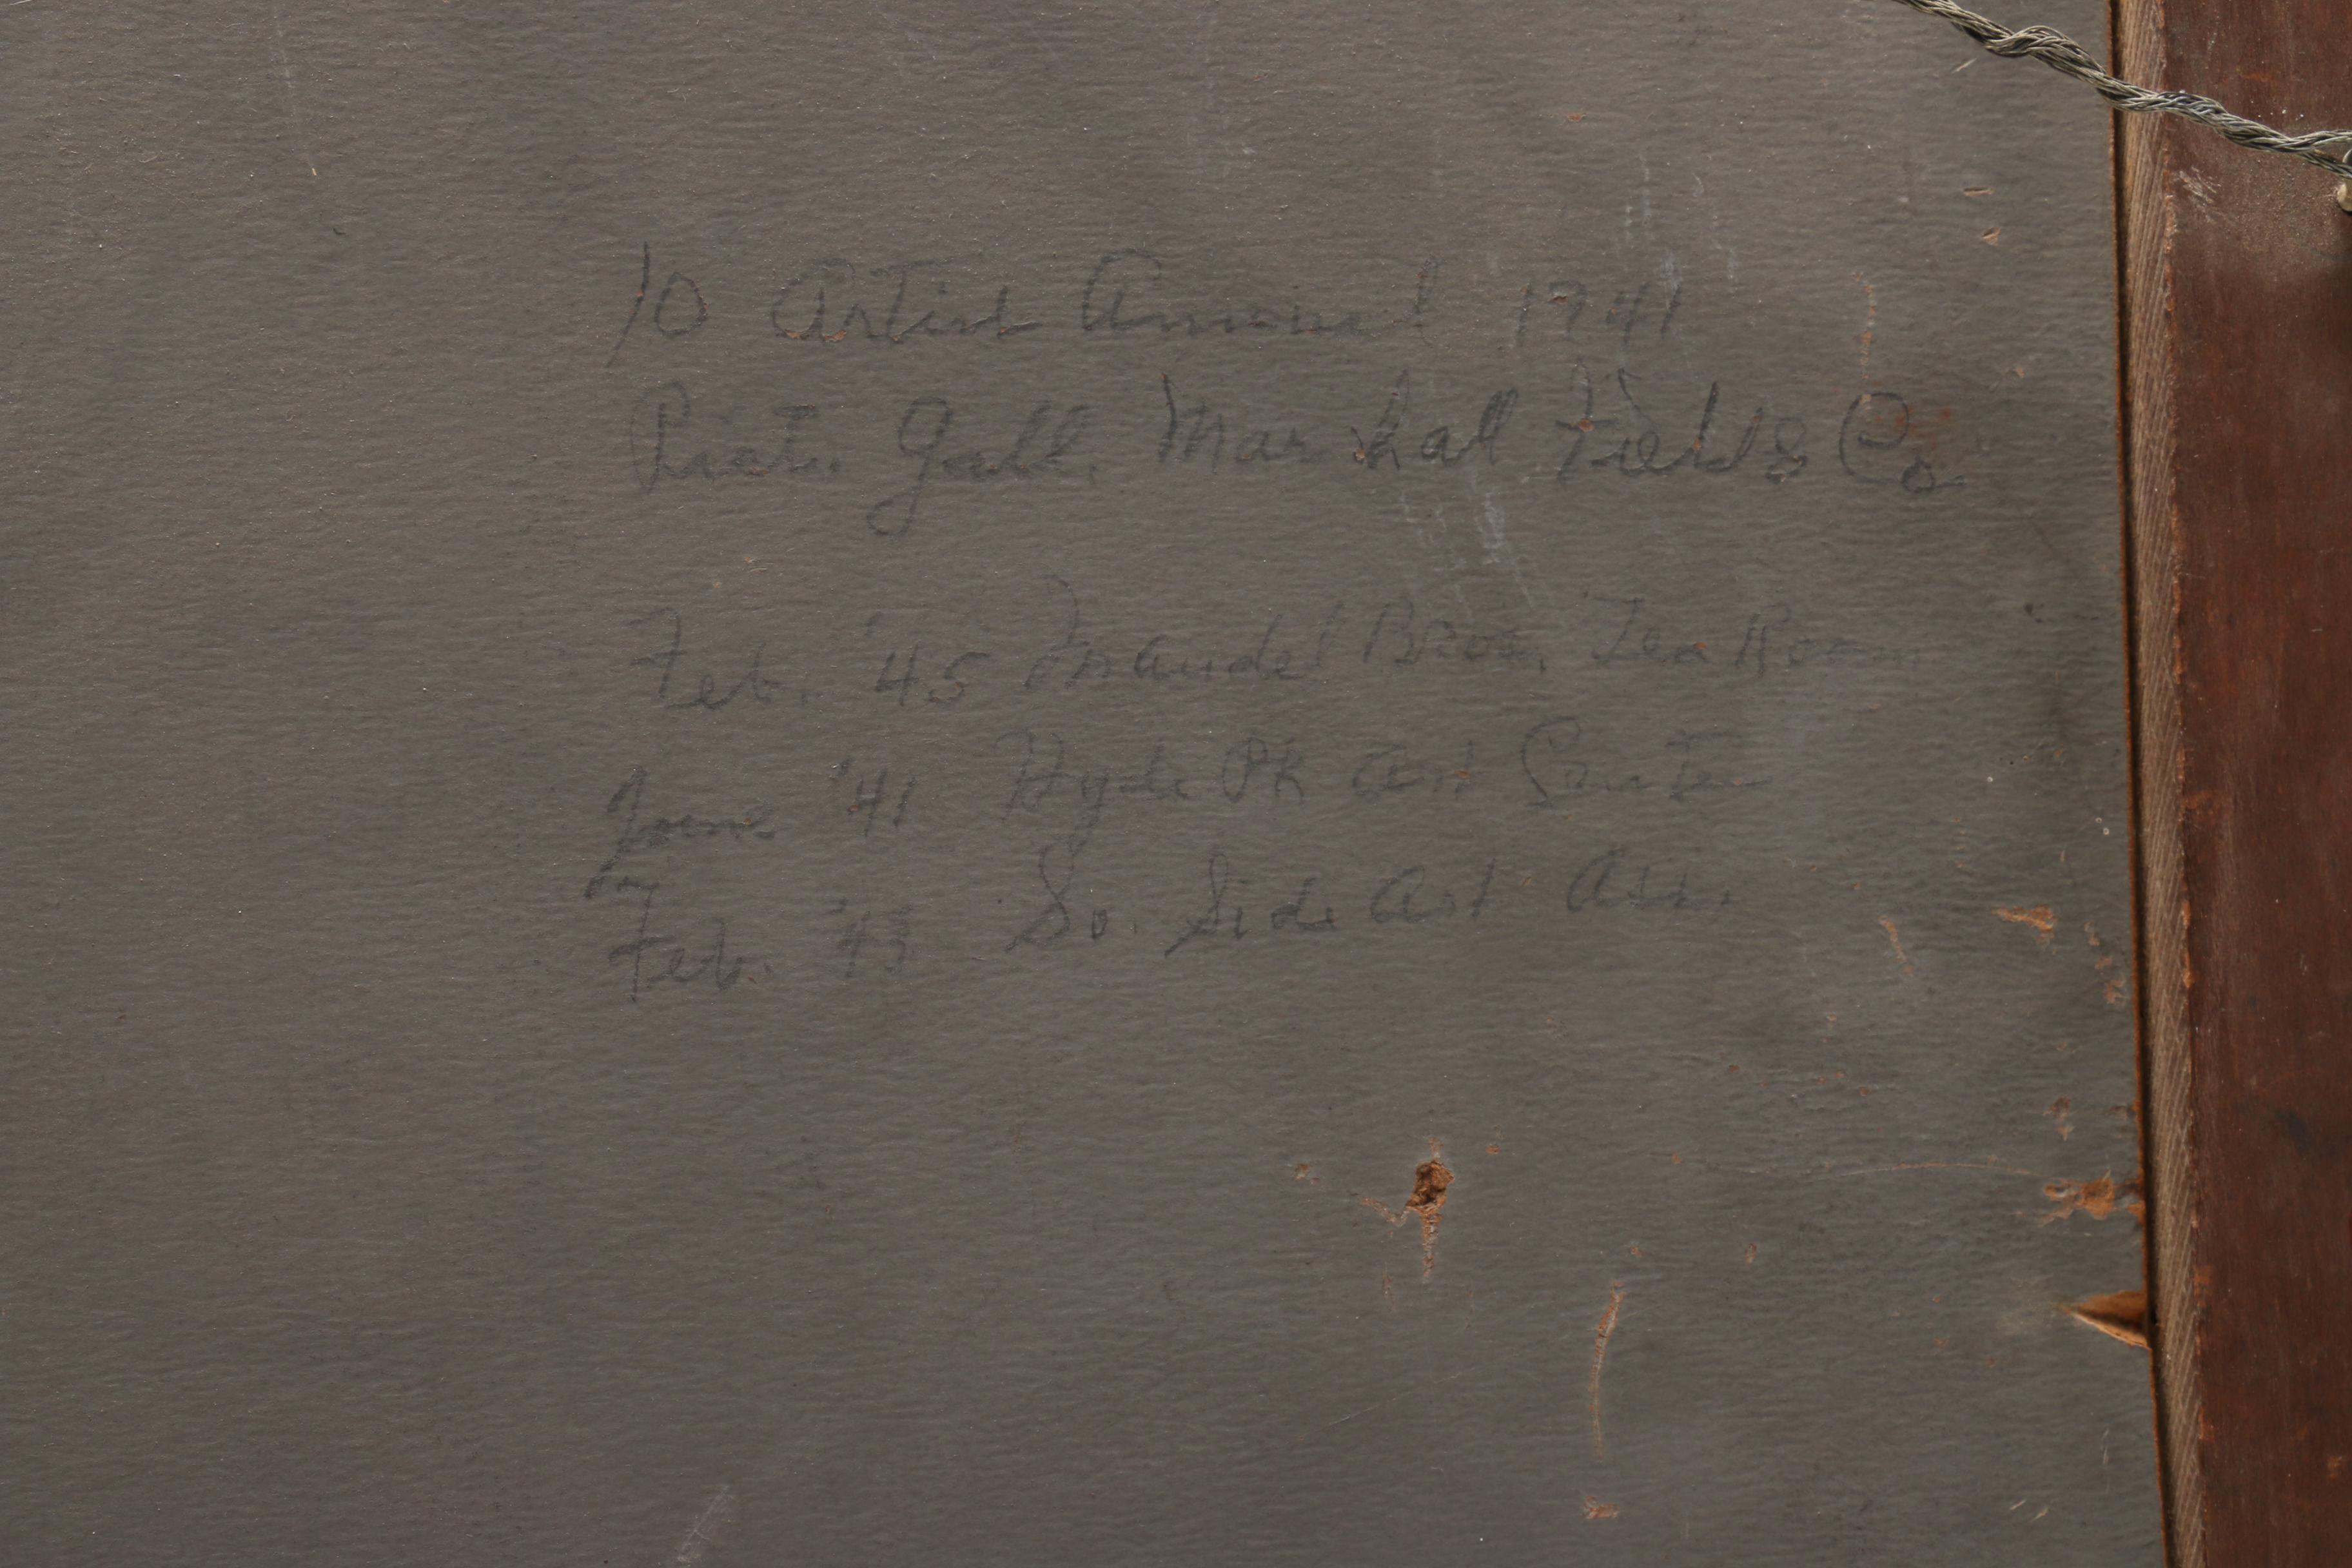 10 Artist Annual 1941
Pict. Gall. Marshall Field & Co
Feb. '45 Mandel Bros. Tea Room
June '41 Hyde Pk Art Center
Feb. '43 So. Side Art Ass.